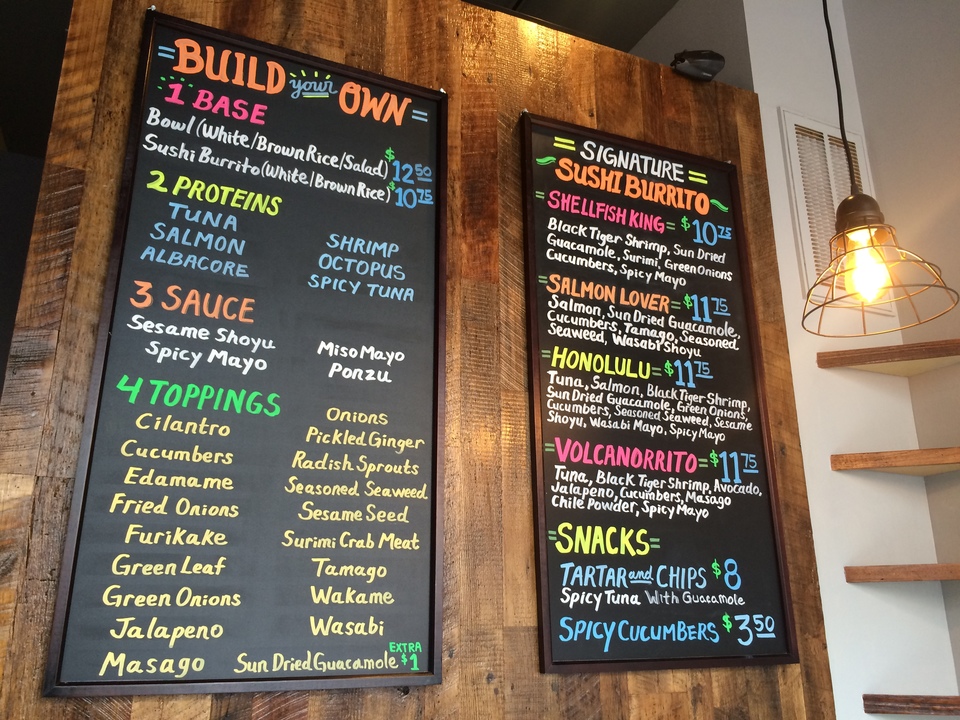 BUILD your OWN
1 BASE
Bowl (White/Brown Rice/Salad) $12 50
Sushi Burrito (White/Brown Rice) $10 75
2 PROTEINS
TUNA
SALMON
ALBACORE
SHRIMP
OCTOPUS
SPICY TUNA
3 SAUCE
Sesame Shoyu
Spicy Mayo
Miso Mayo
Ponzu
4 TOPPINGS
Cilantro
Cucumbers
Edamame
Fried Onions
Furikake
Green Leaf
Green Onions
Jalapeno
Masago
Onions
Pickled Ginger
Radish Sprouts
Seasoned Seaweed
Sesame Seed
Surimi Crab Meat
Tamago
Wakame
Wasabi
Sun Dried Guacamole EXTRA $1
=SIGNATURE=
SUSHI BURRITO
=SHELLFISH KING= $10 75
Black Tiger Shrimp, Sun Dried
Guacamole, Surimi, Green Onions
Cucumbers, Spicy Mayo
=SALMON LOVER= $11 75
Salmon, Sun Dried Guacamole,
Cucumbers, Tamago, Seasoned
Seaweed, Wasabi Shoyu
=HONOLULU= $11 75
Tuna, Salmon, Black Tiger Shrimp,
Sun Dried Guacamole, Green Onions,
Cucumbers, Seasoned Seaweed, Sesame
Shoyu, Wasabi Mayo, Spicy Mayo
=VOLCANORRITO= $11 75
Tuna, Black Tiger Shrimp, Avocado,
Jalapeno, Cucumbers, Masago
Chile Powder, Spicy Mayo
=SNACKS=
TARTAR and CHIPS $8
Spicy Tuna With Guacamole
SPICY CUCUMBERS $3 50